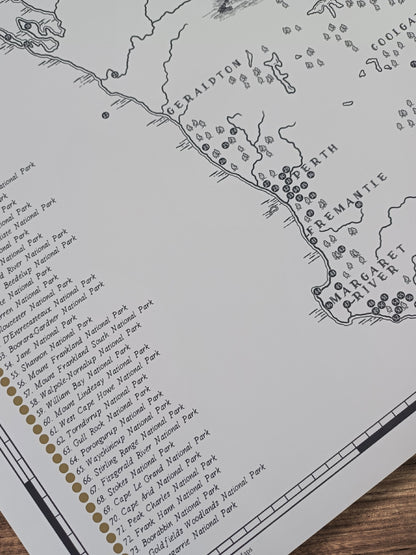 COOLGA
GERALDTON
PERTH
FREMANTLE
MARGARET
RIVER
National Park
National Park
National Park
National Park
National Park
National Park
River National Park
Beedelup National Park
National Park
National Park
Gloucester National Park
D'Entrecasteaux National Park
53. Boorara-Gardner National Park
54. Jane National Park
55. Shannon National Park
56. Mount Frankland National Park
57. Mount Frankland South National Park
58. Walpole-Nornalup National Park
59. William Bay National Park
60. Mount Lindesay National Park
61. West Cape Howe National Park
62. Torndirrup National Park
63. Gull Rock National Park
64. Porongurup National Park
65. Waychinicup National Park
66. Stirling Range National Park
67. Fitzgerald River National Park
68. Stokes National Park
69. Cape Le Grand National Park
70. Cape Arid National Park
71. Peak Charles National Park
72. Frank Hann National Park
73. Boorabbin National Park
Goldfields Woodlands National Park
National Park